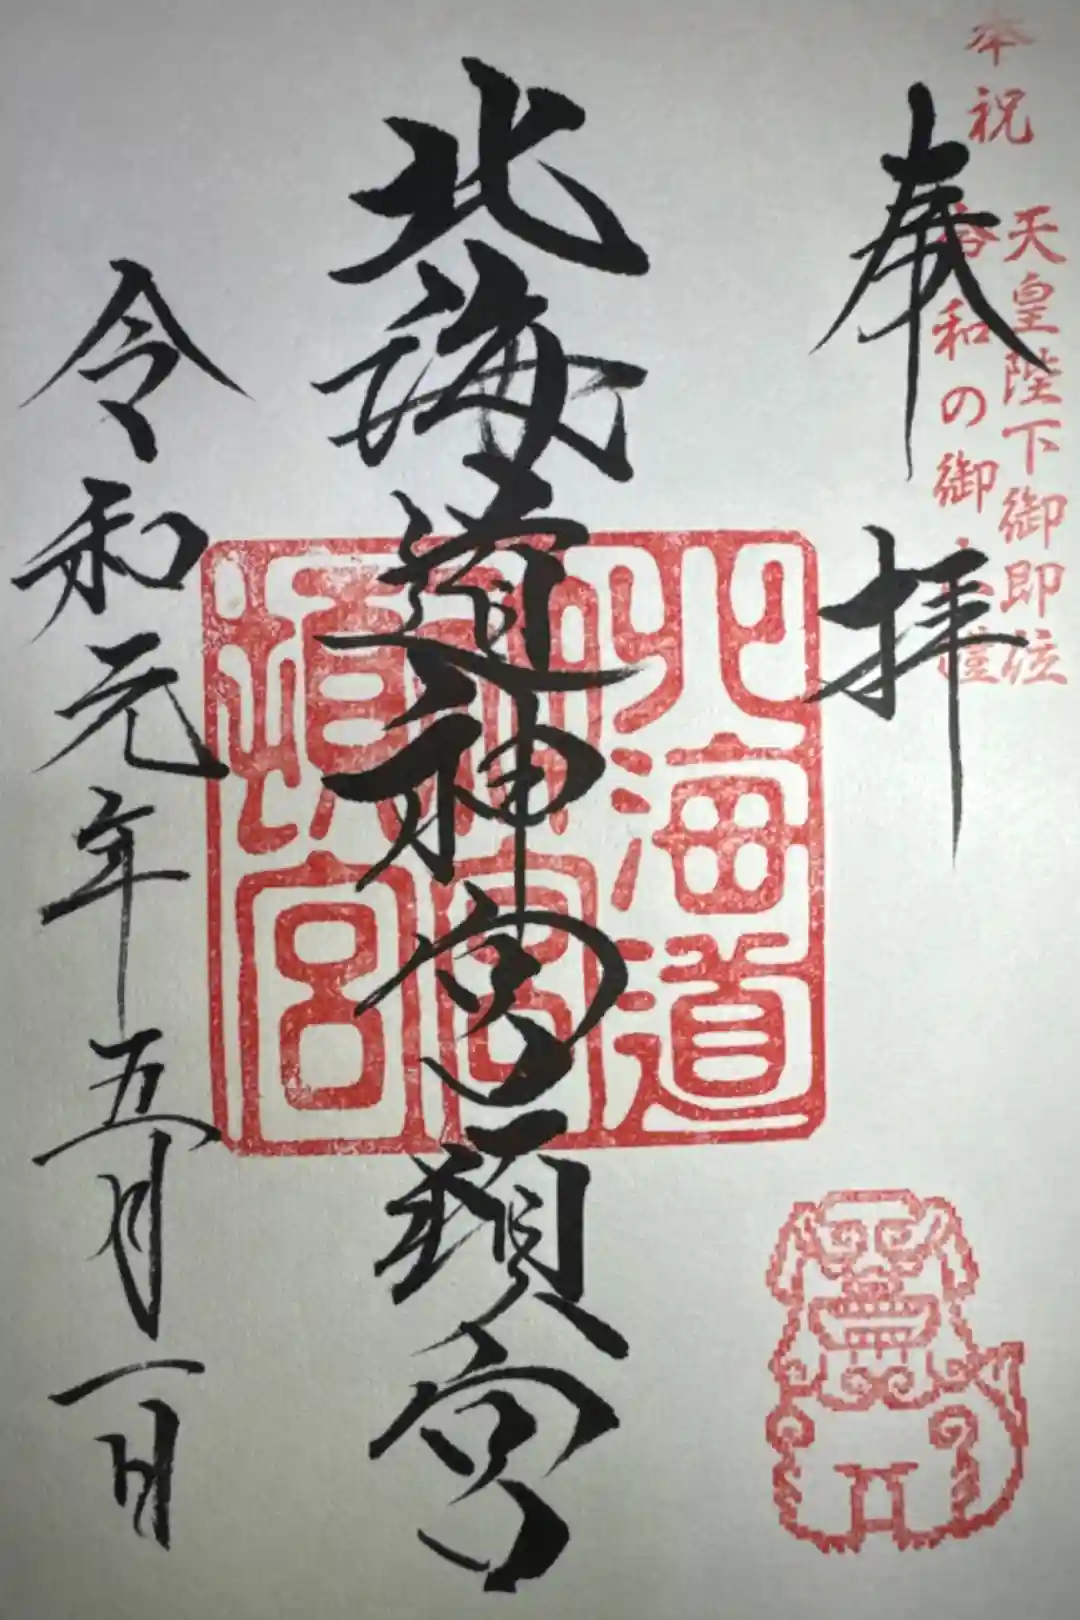 奉祝
天皇陛下御即位
令和の御
奉拝
北海道神宮頓宮
北海道
神宮
頓宮
令和元年五月一日